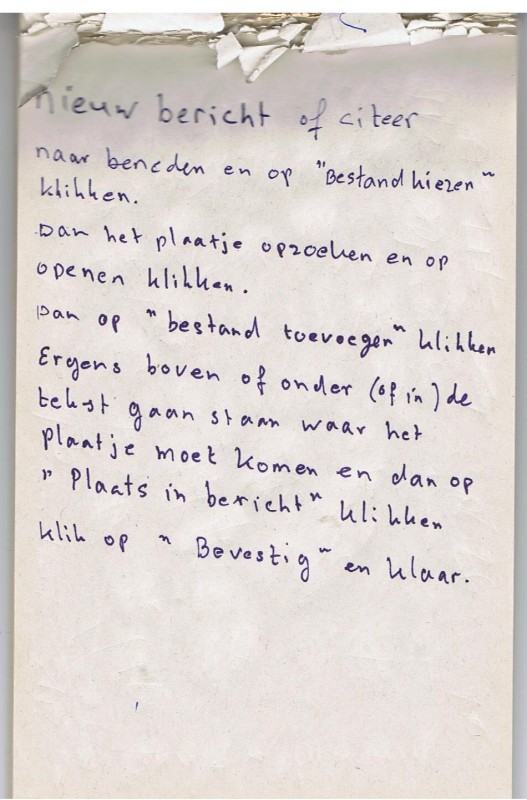 nieuw bericht of citeer
naar beneden en op "Bestand kiezen"
klikken.
Dan het plaatje opzoeken en op
openen klikken.
Dan op "bestand toevoegen" klikken
Ergens boven of onder (of in) de
tekst gaan staan waar het
plaatje moet komen en dan op
"Plaats in bericht" klikken
klik op "Bevestig" en klaar.